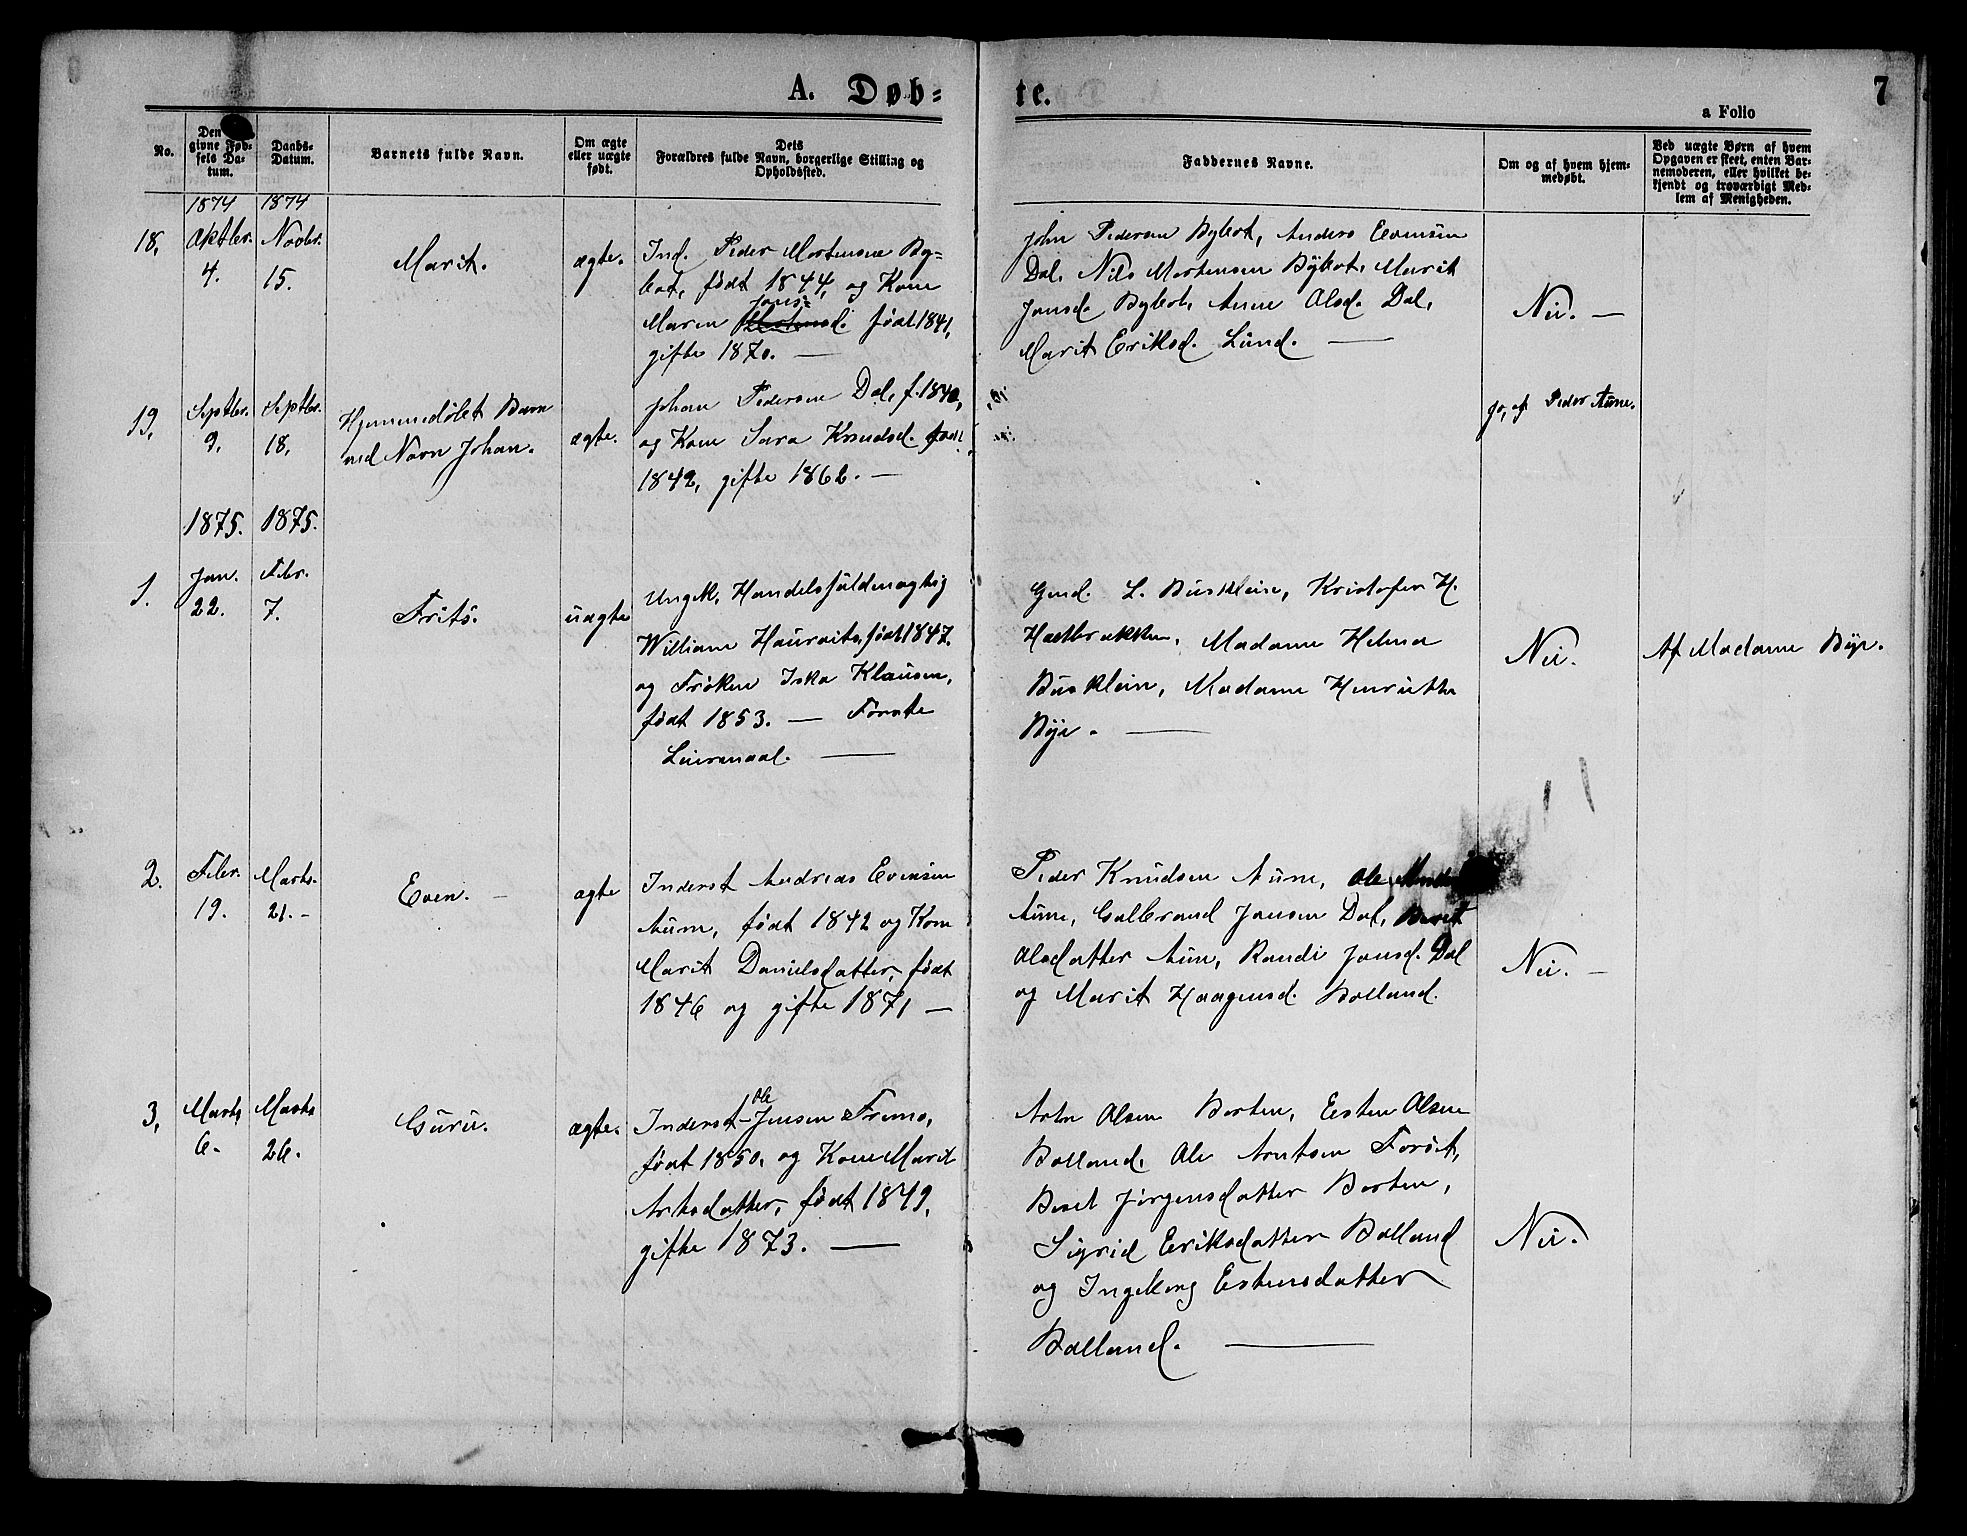 A. Døbte.
7
a Folio
No.
Den givne Fødsels Datum.
Daabs-Datum.
Barnets fulde Navn.
Om ægte eller uægte født.
Dets Forældres fulde Navn, borgerlige Stilling og Opholdssted.
Faddernes Navne.
Om og af hvem hjemmedøbt.
Ved uægte Børn af hvem Opgaven er skeet, enten Barnemoderen, eller hvilket bekjendt og troværdigt Medlem af Menigheden.
1874 1874
18, Oktbr. 4. Novbr. 15.
Marit.
ægte.
Ind. Peder Mortensen Byg-
født 1844, og Kone
Maren Jons= d. født 1841,
gifte 1870. —
John Pedersen Anders Evensen
Dal, Nils Mortensen Marit
Jonsd. Anne Olsd. Dal,
Marit Eriksd. Lund. —
Nei. —
19, Septbr. 9, Septbr. 18,
Hjemmedøbt Barn
ved Navn Johan.
ægte.
Johan Pedersen Dal, f. 1840,
og Kone Sara Knudsd. født
1842, gifte 1862. —
Jo, af Peder Aune.
1875. 1875.
1. Jan. 22. Febr. 7.
Frits.
uægte
Ungk. Handelsfuldmægtig
William født 1847.
og Frøken Iska Klausen,
født 1853. — Første
Leiermaal. —
L. Buschlein, Kristofer H.
Madame Helma
Buschlein, Madame Henriette
Bye. —
Nei.
Af Madame Bye.
2. Febr. 19. Marts. 21. -
Even. —
ægte
Inderst Andreas Evensen
Aune, født 1842 og Kone
Marit Danielsdatter, født
1846 og gifte 1871 —
Peder Knudsen Aune, Ole
Aune, Gulbrand Jonsen Dal, Berit
Olsdatter Aune, Randi Jonsd. Dal
og Marit Haagensd. Bolland.
Nei. —
3, Marts 6. Marts 26.
Guru.
ægte.
Inderst Ole Jensen Fremo,
født 1850, og Kone Marit
Arntsdatter, født 1849,
gifte 1873. —
Arnt Olsen Borten, Esten Olsen
Bolland, Ole Arntsen Forset,
Beret Jørgensdatter Borten,
Sigrid Eriksdatter Bolland
og Ingeborg Estensdatter
Bolland. —
Nei.